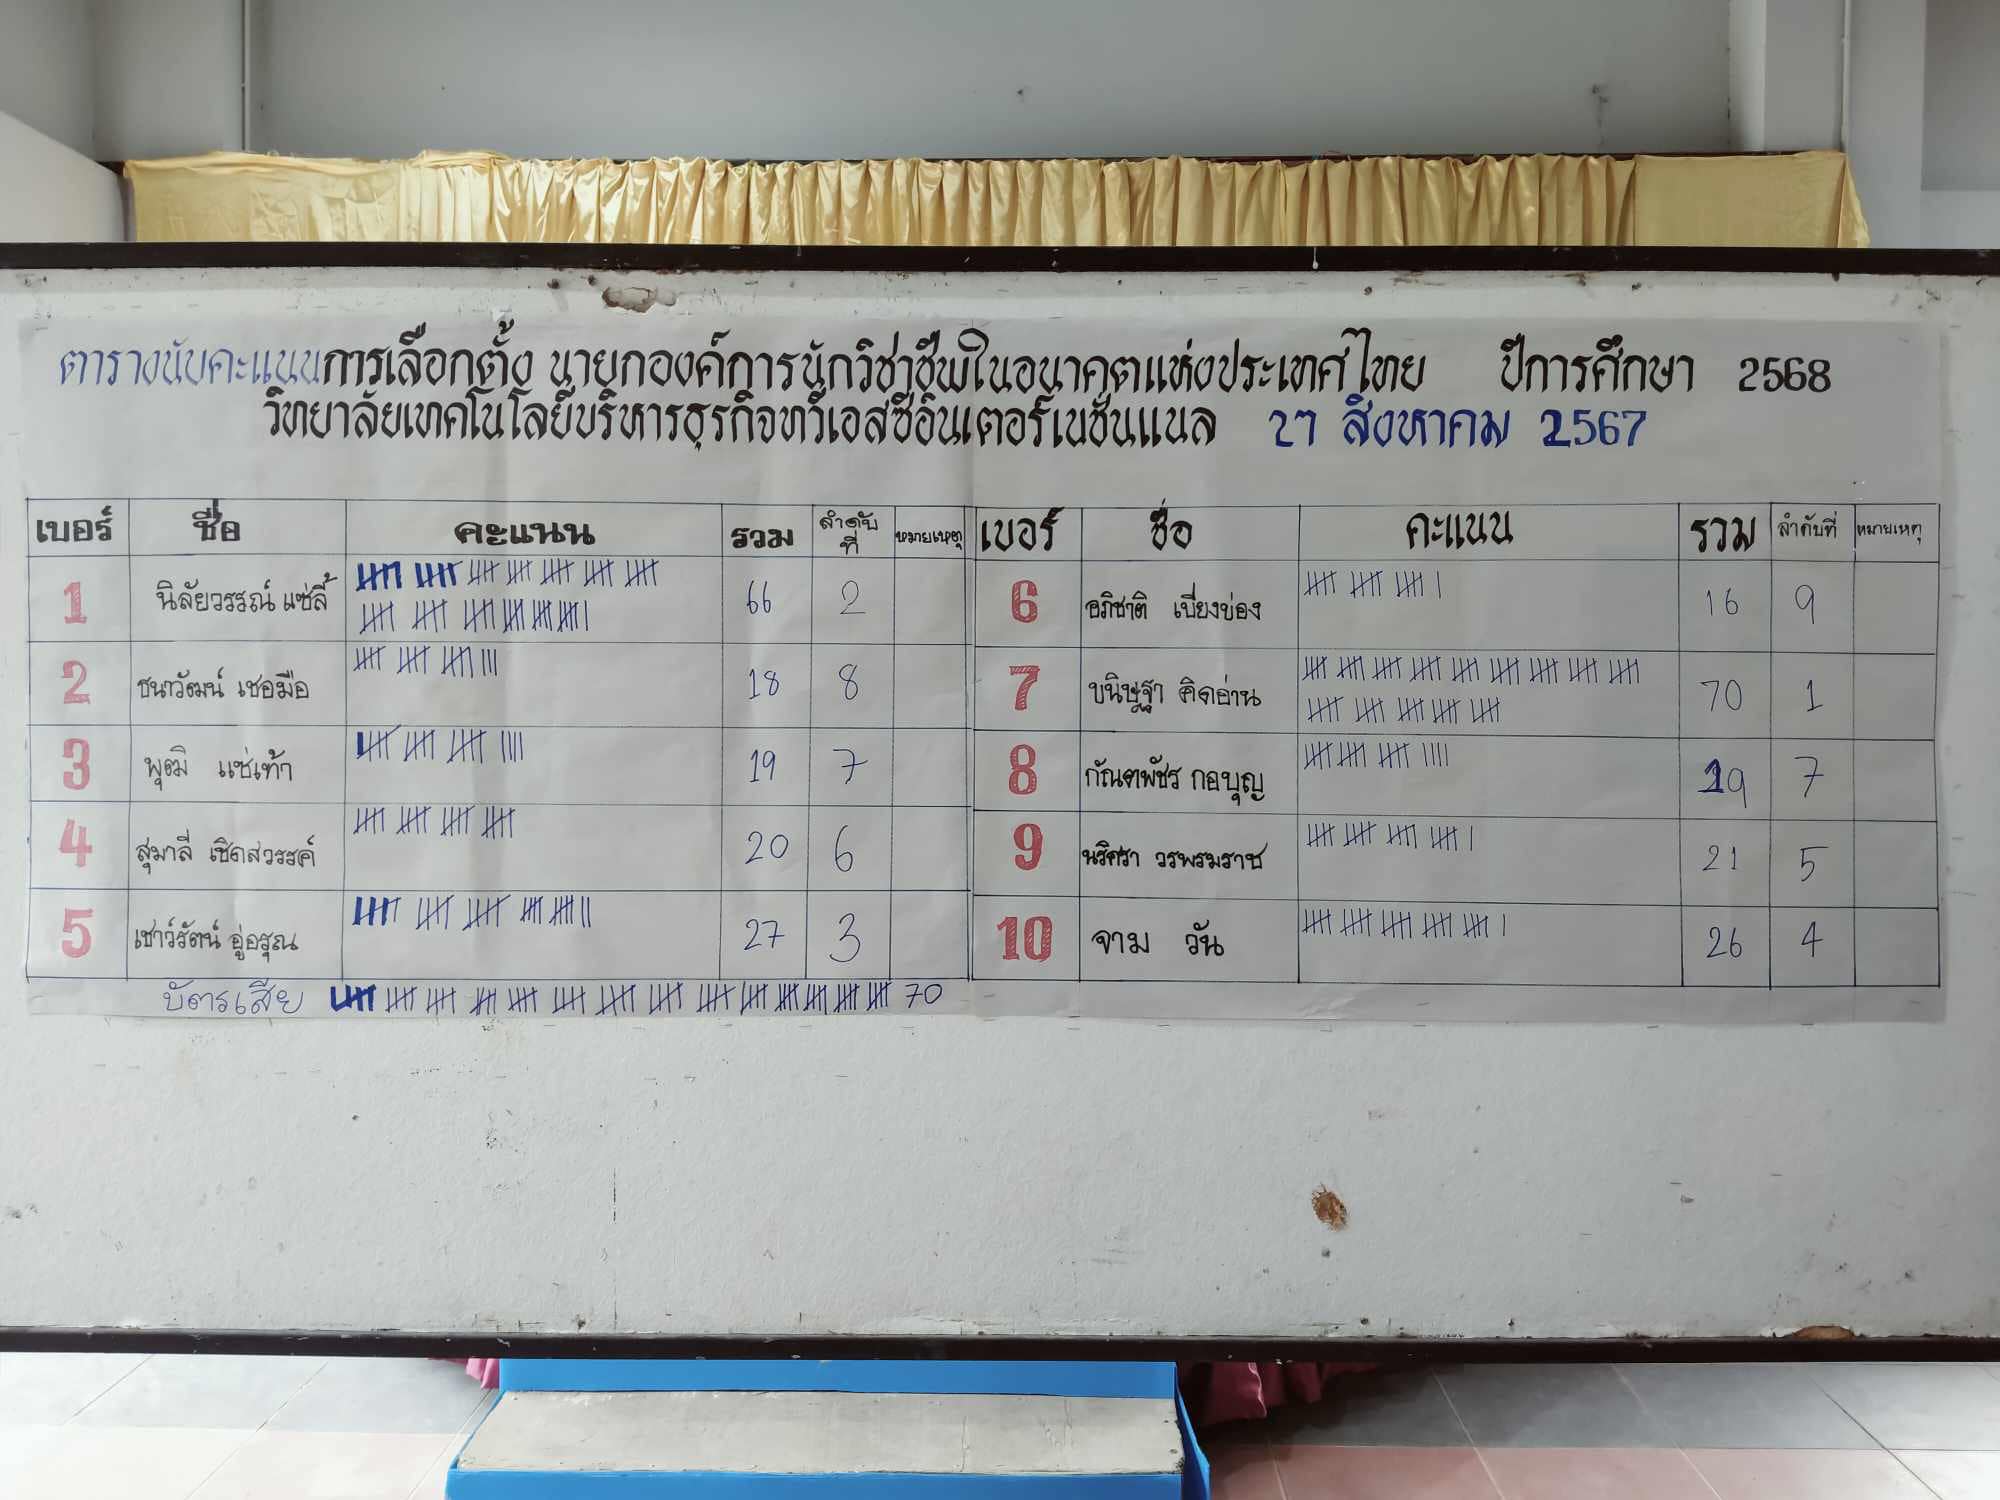 ตารางนับคะแนนการเลือกตั้ง นายกองค์การนักวิชาชีพในอนาคตแห่งประเทศไทย ปีการศึกษา 2568
วิทยาลัยเทคโนโลยีบริหารธุรกิจทวีเอสซีอินเตอร์เนชั่นแนล 27 สิงหาคม 2567
เบอร์ ชื่อ คะแนน รวม ลำดับที่ หมายเหตุ
1 นิลัยวรรณ์ แซ่ลี้ 66 2
2 ธนาวัฒน์ เชอมือ 18 8
3 พุฒิ แซ่เท้า 19 7
4 สุมาลี่ เชิดสวรรค์ 20 6
5 เชาว์รัตน์ อู่อรุณ 27 3
บัตรเสีย 70
เบอร์ ชื่อ คะแนน รวม ลำดับที่ หมายเหตุ
6 อภิชาติ เบียงข่อง 16 9
7 ขนิษฐา คิดอ่าน 70 1
8 กัณตพัชร กอบุญ 19 7
9 นริศรา วรพรมราช 21 5
10 จาม วัน 26 4